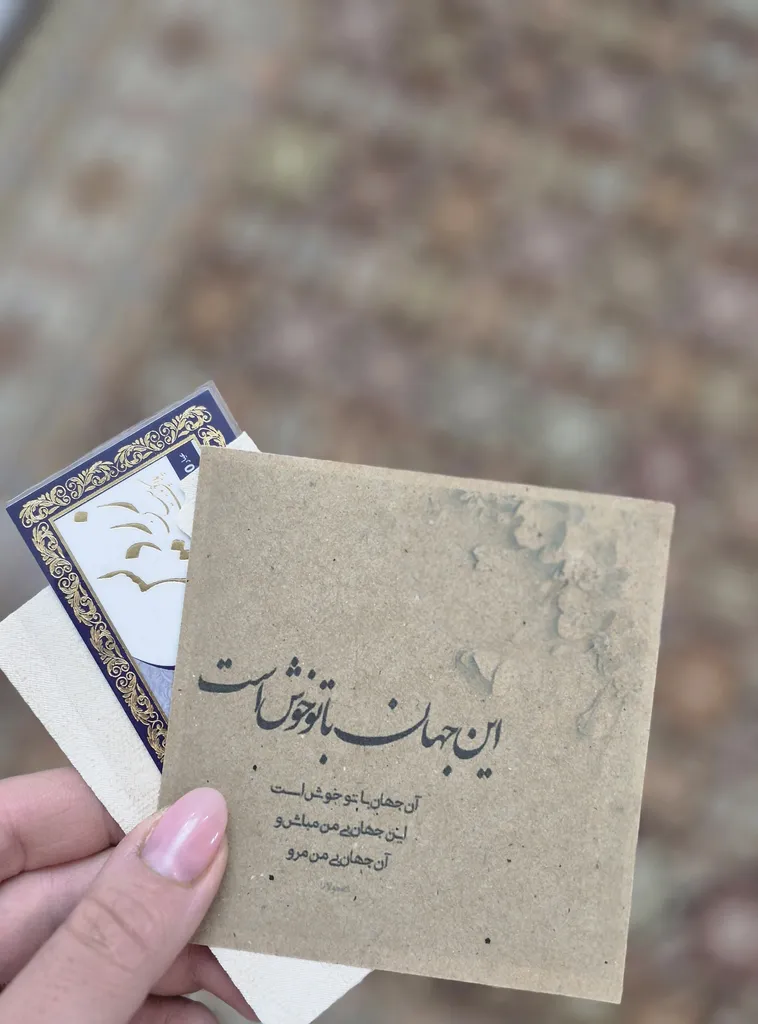 این جهان با تو خوش است
آن جهان با تو خوش است
این جهان بی من مباش و
آن جهان بی من مرو